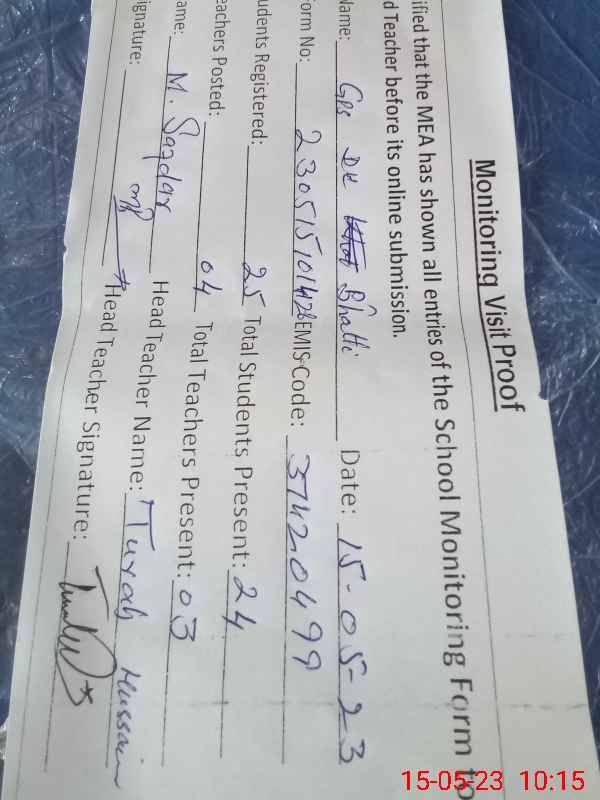 Monitoring Visit Proof
ified that the MEA has shown all entries of the School Monitoring Form to
d Teacher before its online submission.
Name: Gps Dk Bhatti Date: 15-05-23
Form No: 230515101428 EMIS Code: 37420499
udents Registered: 25 Total Students Present: 24
eachers Posted: 04 Total Teachers Present: 03
ame: M. Safdar Head Teacher Name: Turab Hussain
ignature: Head Teacher Signature:
15-05-23 10:15